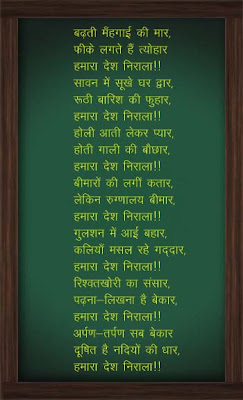 बढ़ती मँहगाई की मार,
फीके लगते हैं त्योहार
हमारा देश निराला!!
सावन में सूखे घर द्वार,
रूठी बारिश की फुहार,
हमारा देश निराला!!
होली आती लेकर प्यार,
होती गाली की बौछार,
हमारा देश निराला!!
बीमारों की लगीं कतार,
लेकिन रुग्णालय बीमार,
हमारा देश निराला!!
गुलशन में आई बहार,
कलियाँ मसल रहे गद्दार,
हमारा देश निराला!!
रिश्वतखोरी का संसार,
पढ़ना–लिखना है बेकार,
हमारा देश निराला!!
अर्पण–तर्पण सब बेकार
दूषित है नदियों की धार,
हमारा देश निराला!!